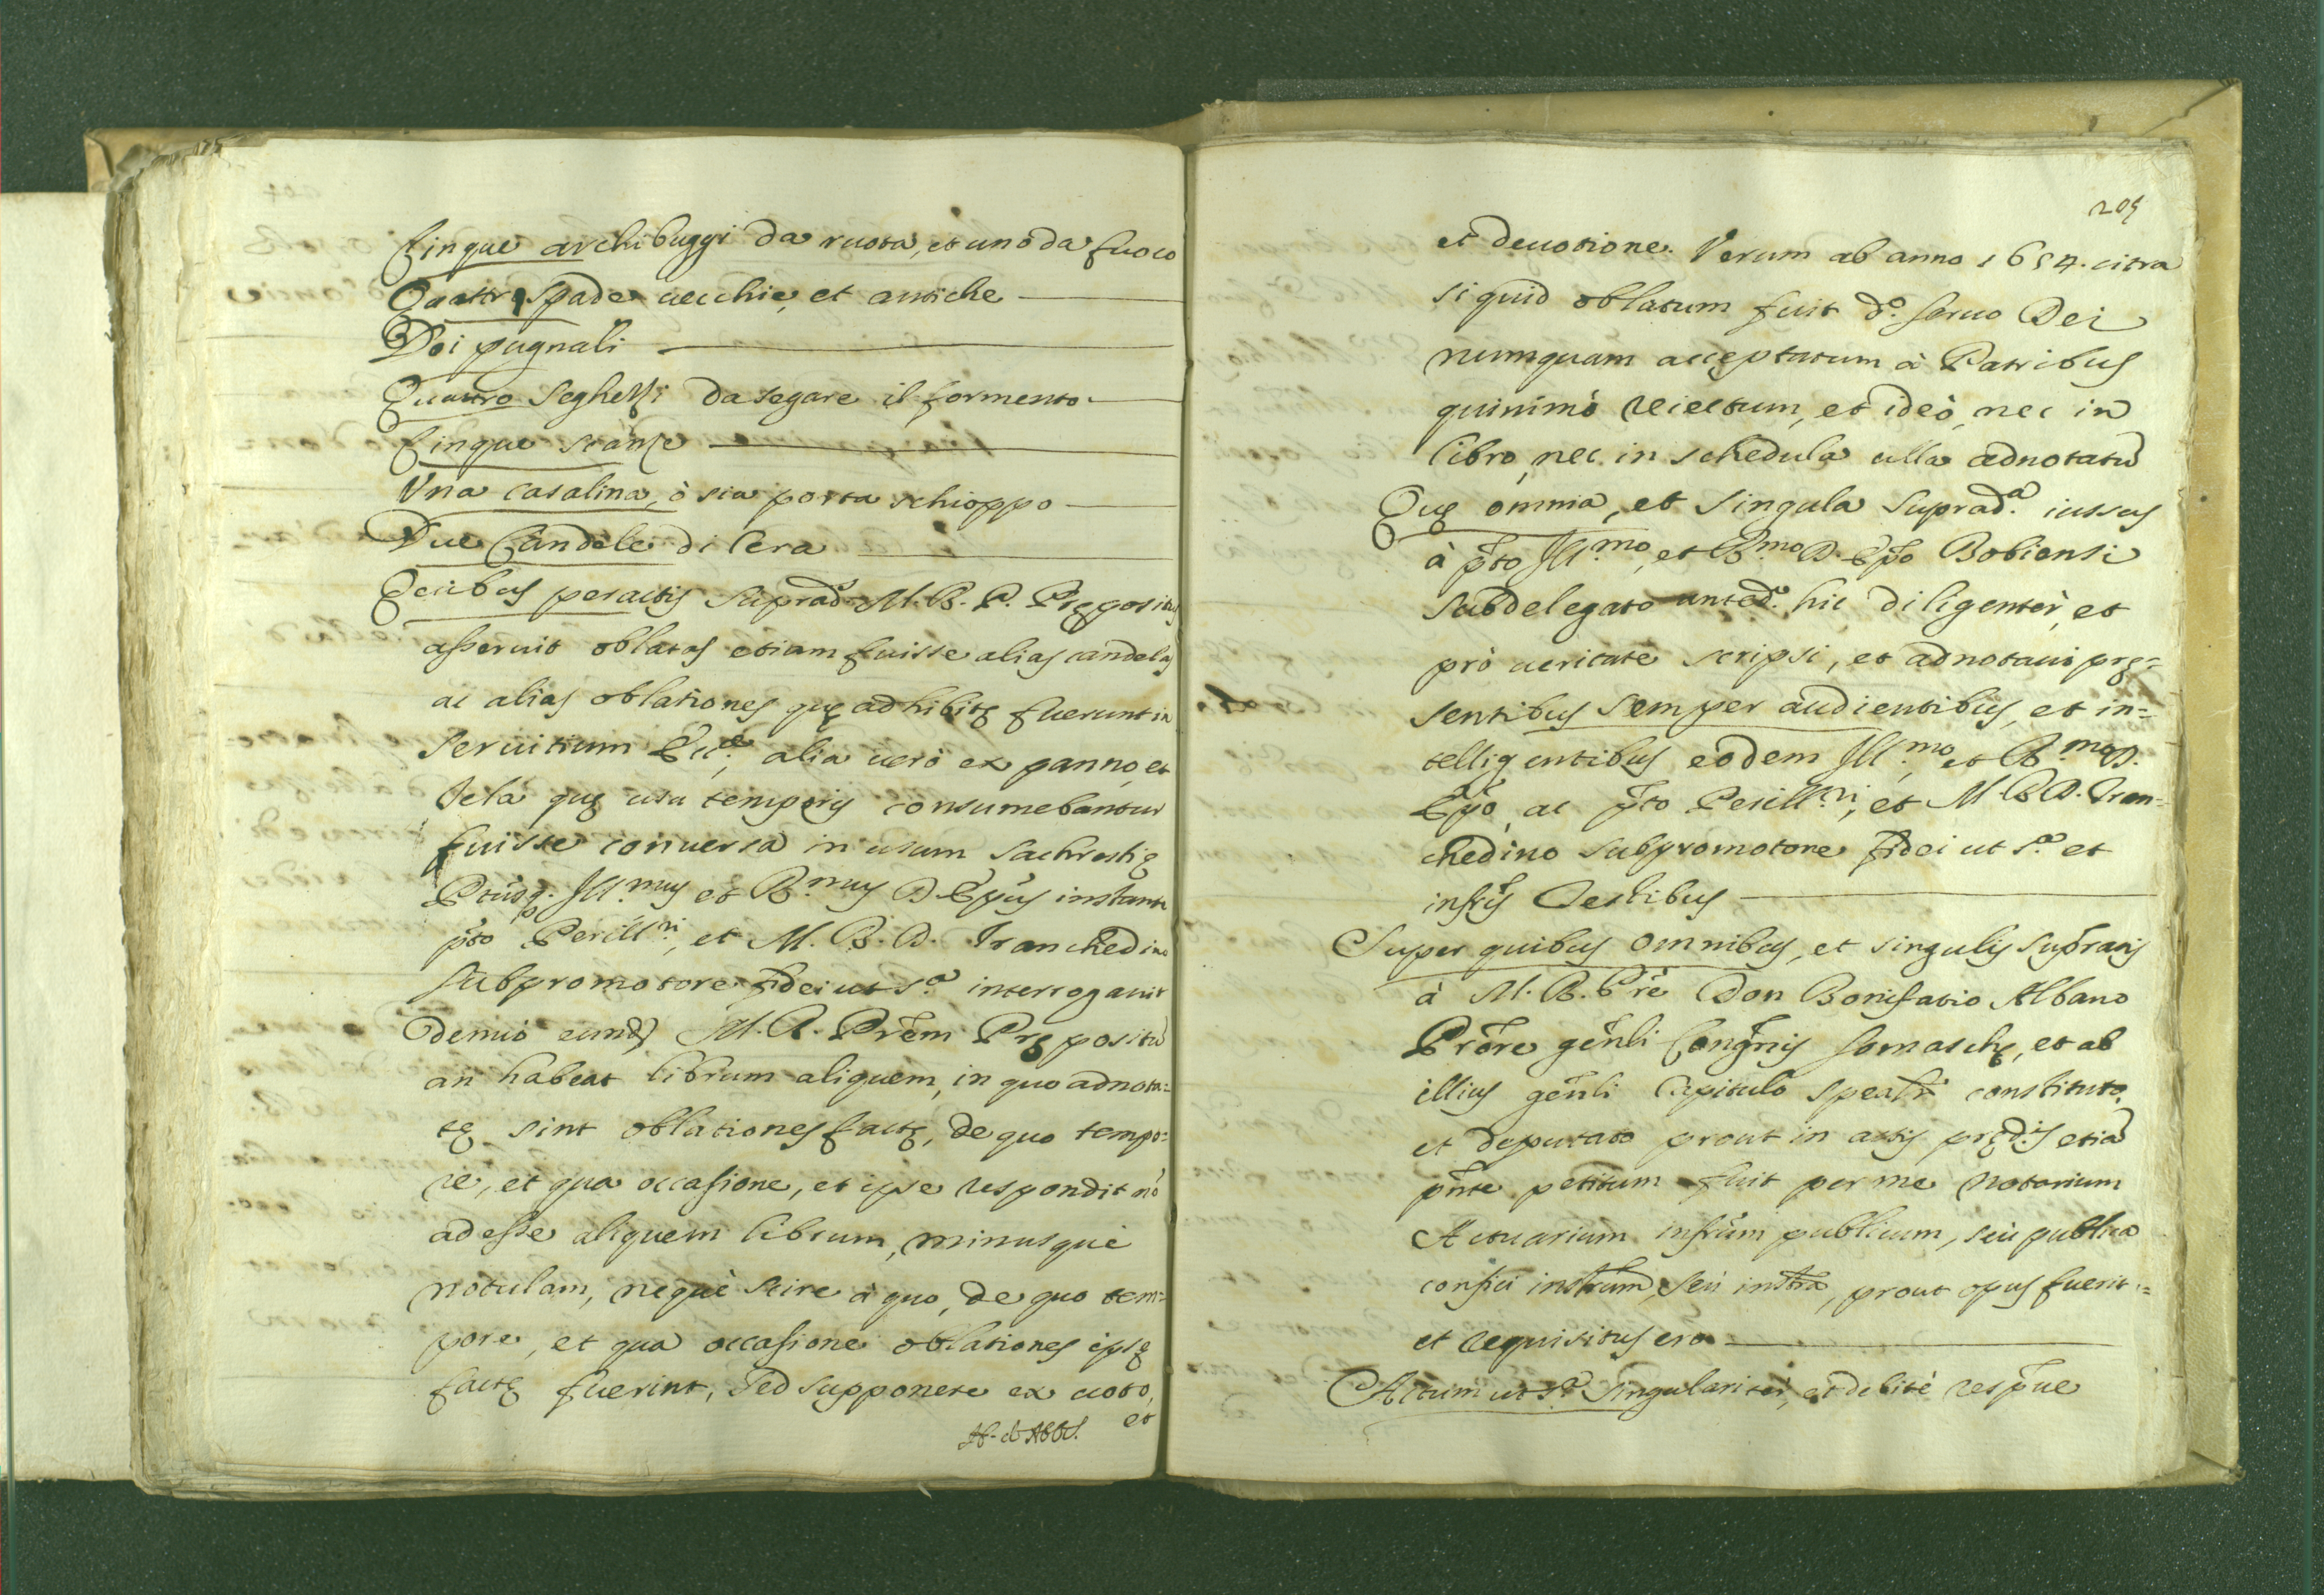 Cinque archibuggi da ruota, et uno da fuoco
Quattro spade uecchie, et antiche
Doi pugnali
Quattro seghetti da segare il formento
Cinque scanze
Vna casalina, ò sia porta schioppo
Due Candele di Cera
Quibus peractis suprad.s M. R. P. Prępositus
asseruit oblatas etiam fuisse alias candelas
ac alias oblationes quę adhibitę fuerunt in
seruitium Ecc.ę, alia uerò ex panno, et
tela quę usu temporis consumebantur
fuisse conuersa in usum sachrestię
Ill.mus et R.mus D. Epũs instante
p̃to Perill.ri, et M. R. D. Tranchedino
subpromotore fidei ut s.a interrogauit
denuò eund. M. R. Prẽm Prępositũ
an habeat librum aliquem, in quo adnota=
tę sint oblationes factę, de quo tempo=
re, et qua occasione, et ipse respondit nò
adesse aliquem librum, minusque
notulam, nequè scire à quo, de quo tem=
pore, et qua occasione oblationes ipsę
factę fuerint, sed supponere ex uoto,
et
205
et deuotione. Verum ab anno 1654. citra
si quid oblatum fuit d.o seruo Dei
numquam acceptatum à Patribus
quinimò reiectum, et ideò, nec in
libro, nec in schedula ulla adnotatũ
Quę omnia, et singula suprad.a iussus
à p̃to Ill.mo, et R.mo D. Ep̃o Bobiensi
subdelegato anted.o hic diligentèr, et
prò ueritate scripsi, et adnotaui prę=
sentibus semper audientibus, et in=
telligentibus eodem Ill.mo, et R.mo D.
Ep̃o, ac p̃to Perill.ri, et M. R. D. Tran=
chedino subpromotore fidei ut s.a et
infr̃is Testibus
Super quibus omnibus, et singulis supratis
à M. R. P̃re Don Bonifatio Albano
Prõre gẽnli Congr̃nis Somaschę, et ab
illius gẽnli Capitulo spealr̃ constituto,
et deputato prout in actis pręd.is etiã
pñte petitum fuit per me Notarium
Actuarium infr̃um publicum, seù publica
confici instrũm, seù instr̃a, prout opus fuerit=
et requisitus ero
Actum ut s.a singularitèr, et debitè resp̃ue